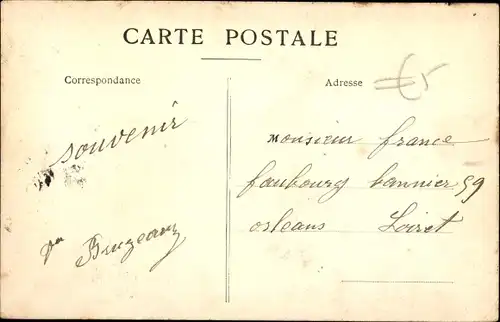 CARTE POSTALE
Correspondance
Adresse
€5
souvenir
monsieur france
faubourg bannier 59
orleans Loiret